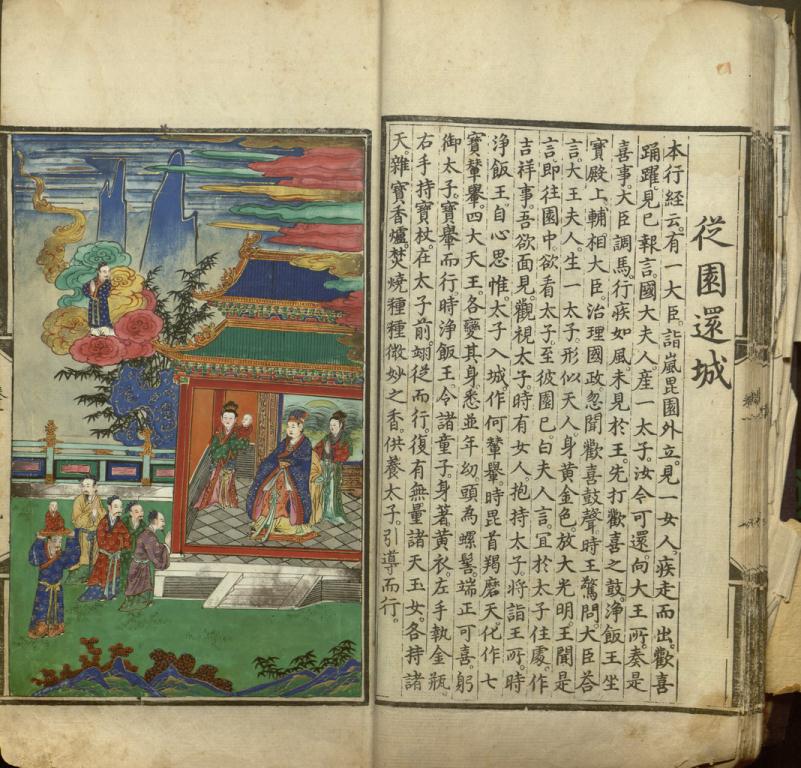 從園還城
本行経云。有一大臣。詣嵐毘園外立。見一女人。疾走而出。歡喜
踊躍。見已報言。國大夫人。産一太子。汝今可還。向大王所奏是
喜事。大臣調馬。行疾如風。未見於王。先打歡喜之鼓。淨飯王坐
寶殿上。輔相大臣。治理國政。忽聞歡喜鼓聲。時王驚問。大臣荅
言。大王夫人。生一太子。形似天人。身黃金色。放大光明。王聞是
言。即往園中。欲看太子。至彼園已。白夫人言。宜於太子住處。作
吉祥事。吾欲面見。觀視太子。時有女人。抱持太子。將詣王所。時
淨飯王。自心思惟。太子入城。作何輦轝。時毘首羯磨天。化作七
寶輦轝。四大天王。各變其身。悉並年幼。頭為螺髻。端正可喜。躬
御太子。寶轝而行。時淨飯王。令諸童子。身著黃衣。左手執金瓶。
右手持寶杖。在太子前。翊從而行。復有無量諸天玉女。各持諸
天。雜寶香爐。焚燒種種微妙之香。供養太子。引導而行。